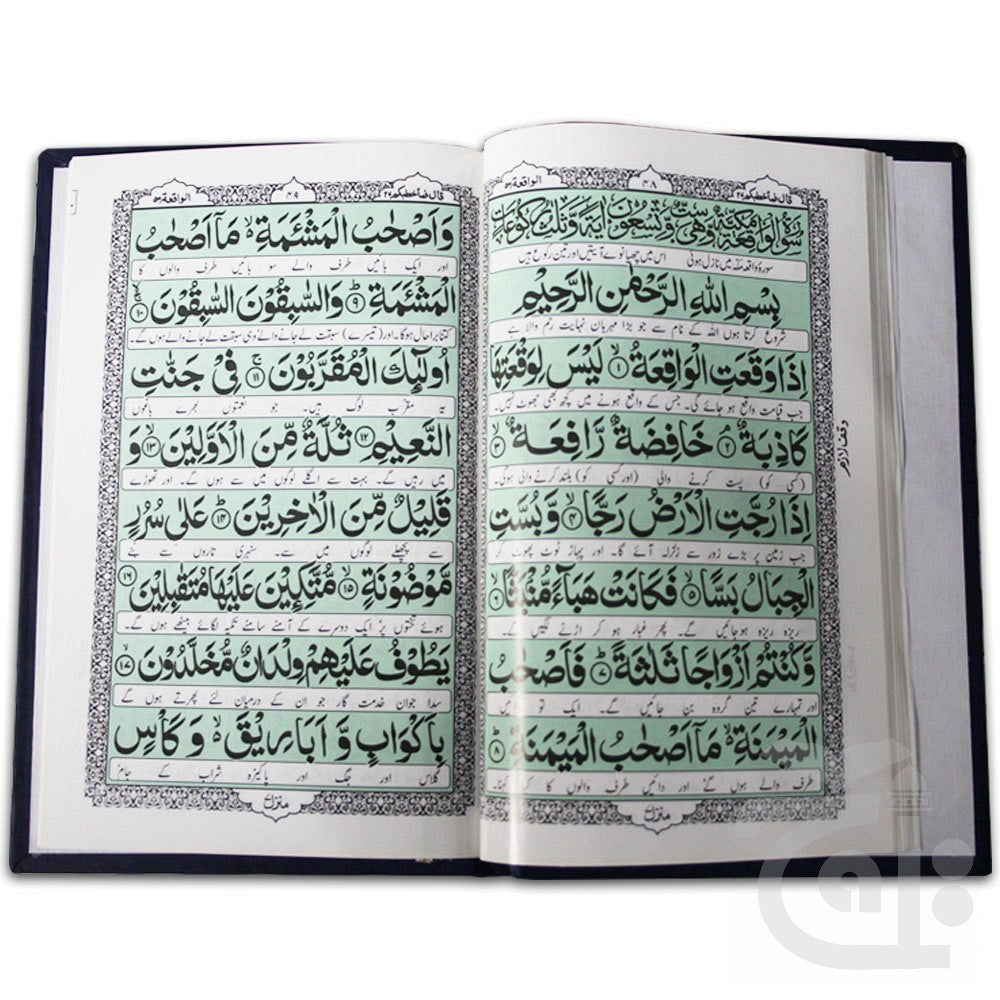 قال فما خطبكم ٢٧
٤٨
الواقعة ٥٦
سُوْرَةُ الْوَاقِعَةِ مَكِّيَّةٌ وَّهِيَ سِتٌّ وَّتِسْعُوْنَ اٰيَةً وَّثَلٰثُ رُكُوْعَاتٍ
سورۂ واقعہ مکہ میں نازل ہوئی اس میں چھیانوے آیتیں اور تین رکوع ہیں
بِسْمِ اللهِ الرَّحْمٰنِ الرَّحِيْمِ
شروع کرتا ہوں اللہ کے نام سے جو بڑا مہربان نہایت رحم والا ہے
اِذَا وَقَعَتِ الْوَاقِعَةُ ۙ۱ لَيْسَ لِوَقْعَتِهَا
جب قیامت واقع ہو جائے گی۔ جس کے واقع ہونے میں کچھ بھی جھوٹ نہیں۔
كَاذِبَةٌ ۘ۲ خَافِضَةٌ رَّافِعَةٌ ۙ۳
(کسی کو) پست کرنے والی (اور کسی کو) بلند کرنے والی ہوگی۔
وقف لازم
اِذَا رُجَّتِ الْاَرْضُ رَجًّا ۙ۴ وَّبُسَّتِ
جب زمین پر بڑے زور سے زلزلہ آئے گا۔ اور پہاڑ ٹوٹ پھوٹ کر
الْجِبَالُ بَسًّا ۙ۵ فَكَانَتْ هَبَآءً مُّنْۢبَثًّا ۙ۶
ریزہ ریزہ ہو جائیں گے۔ پھر غبار ہو کر اڑنے لگیں گے۔
وَّكُنْتُمْ اَزْوَاجًا ثَلٰثَةً ؕ۷ فَاَصْحٰبُ
اور تمہارے تین گروہ بن جائیں گے۔ ایک تو
الْمَيْمَنَةِ ۙ مَاۤ اَصْحٰبُ الْمَيْمَنَةِ ؕ۸
طرف والے ہوں گے اور دائیں طرف والوں کا کیا کہنا۔
منزل
قال فما خطبكم ٢٧
٤٩
الواقعة ٥٦
وَاَصْحٰبُ الْمَشْـَٔمَةِ ۙ مَاۤ اَصْحٰبُ
اور ایک بائیں طرف والے سو بائیں طرف والوں کا
الْمَشْـَٔمَةِ ؕ۹ وَالسّٰبِقُوْنَ السّٰبِقُوْنَ ۚۙ۱۰
کتنا برا حال ہوگا۔ اور (تیسرے) سبقت لے جانے والے وہی سبقت لے جانے والے ہوں گے۔
اُولٰٓئِكَ الْمُقَرَّبُوْنَ ۚ۱۱ فِيْ جَنّٰتِ
یہ مقرب لوگ ہیں۔ جو نعمتوں بھرے باغوں
النَّعِيْمِ ۱۲ ثُلَّةٌ مِّنَ الْاَوَّلِيْنَ ۙ۱۳ وَ
میں رہیں گے۔ بہت سے اگلے لوگوں میں سے ہوں گے۔ اور تھوڑے
قَلِيْلٌ مِّنَ الْاٰخِرِيْنَ ؕ۱۴ عَلٰى سُرُرٍ
سے پچھلے لوگوں میں سے۔ سنہری تاروں سے بنے
مَّوْضُوْنَةٍ ۙ۱۵ مُّتَّكِـِٕيْنَ عَلَيْهَا مُتَقٰبِلِيْنَ ۱۶
ہوئے تختوں پر ایک دوسرے کے آمنے سامنے تکیہ لگائے بیٹھے ہوں گے۔
يَطُوْفُ عَلَيْهِمْ وِلْدَانٌ مُّخَلَّدُوْنَ ۙ۱۷
سدا جوان خدمت گار جو ان کے درمیان لئے پھرتے ہوں گے
بِاَكْوَابٍ وَّاَبَارِيْقَ ۙ وَكَاْسٍ
گلاس اور جگ اور پاکیزہ شراب کے جام
منزل